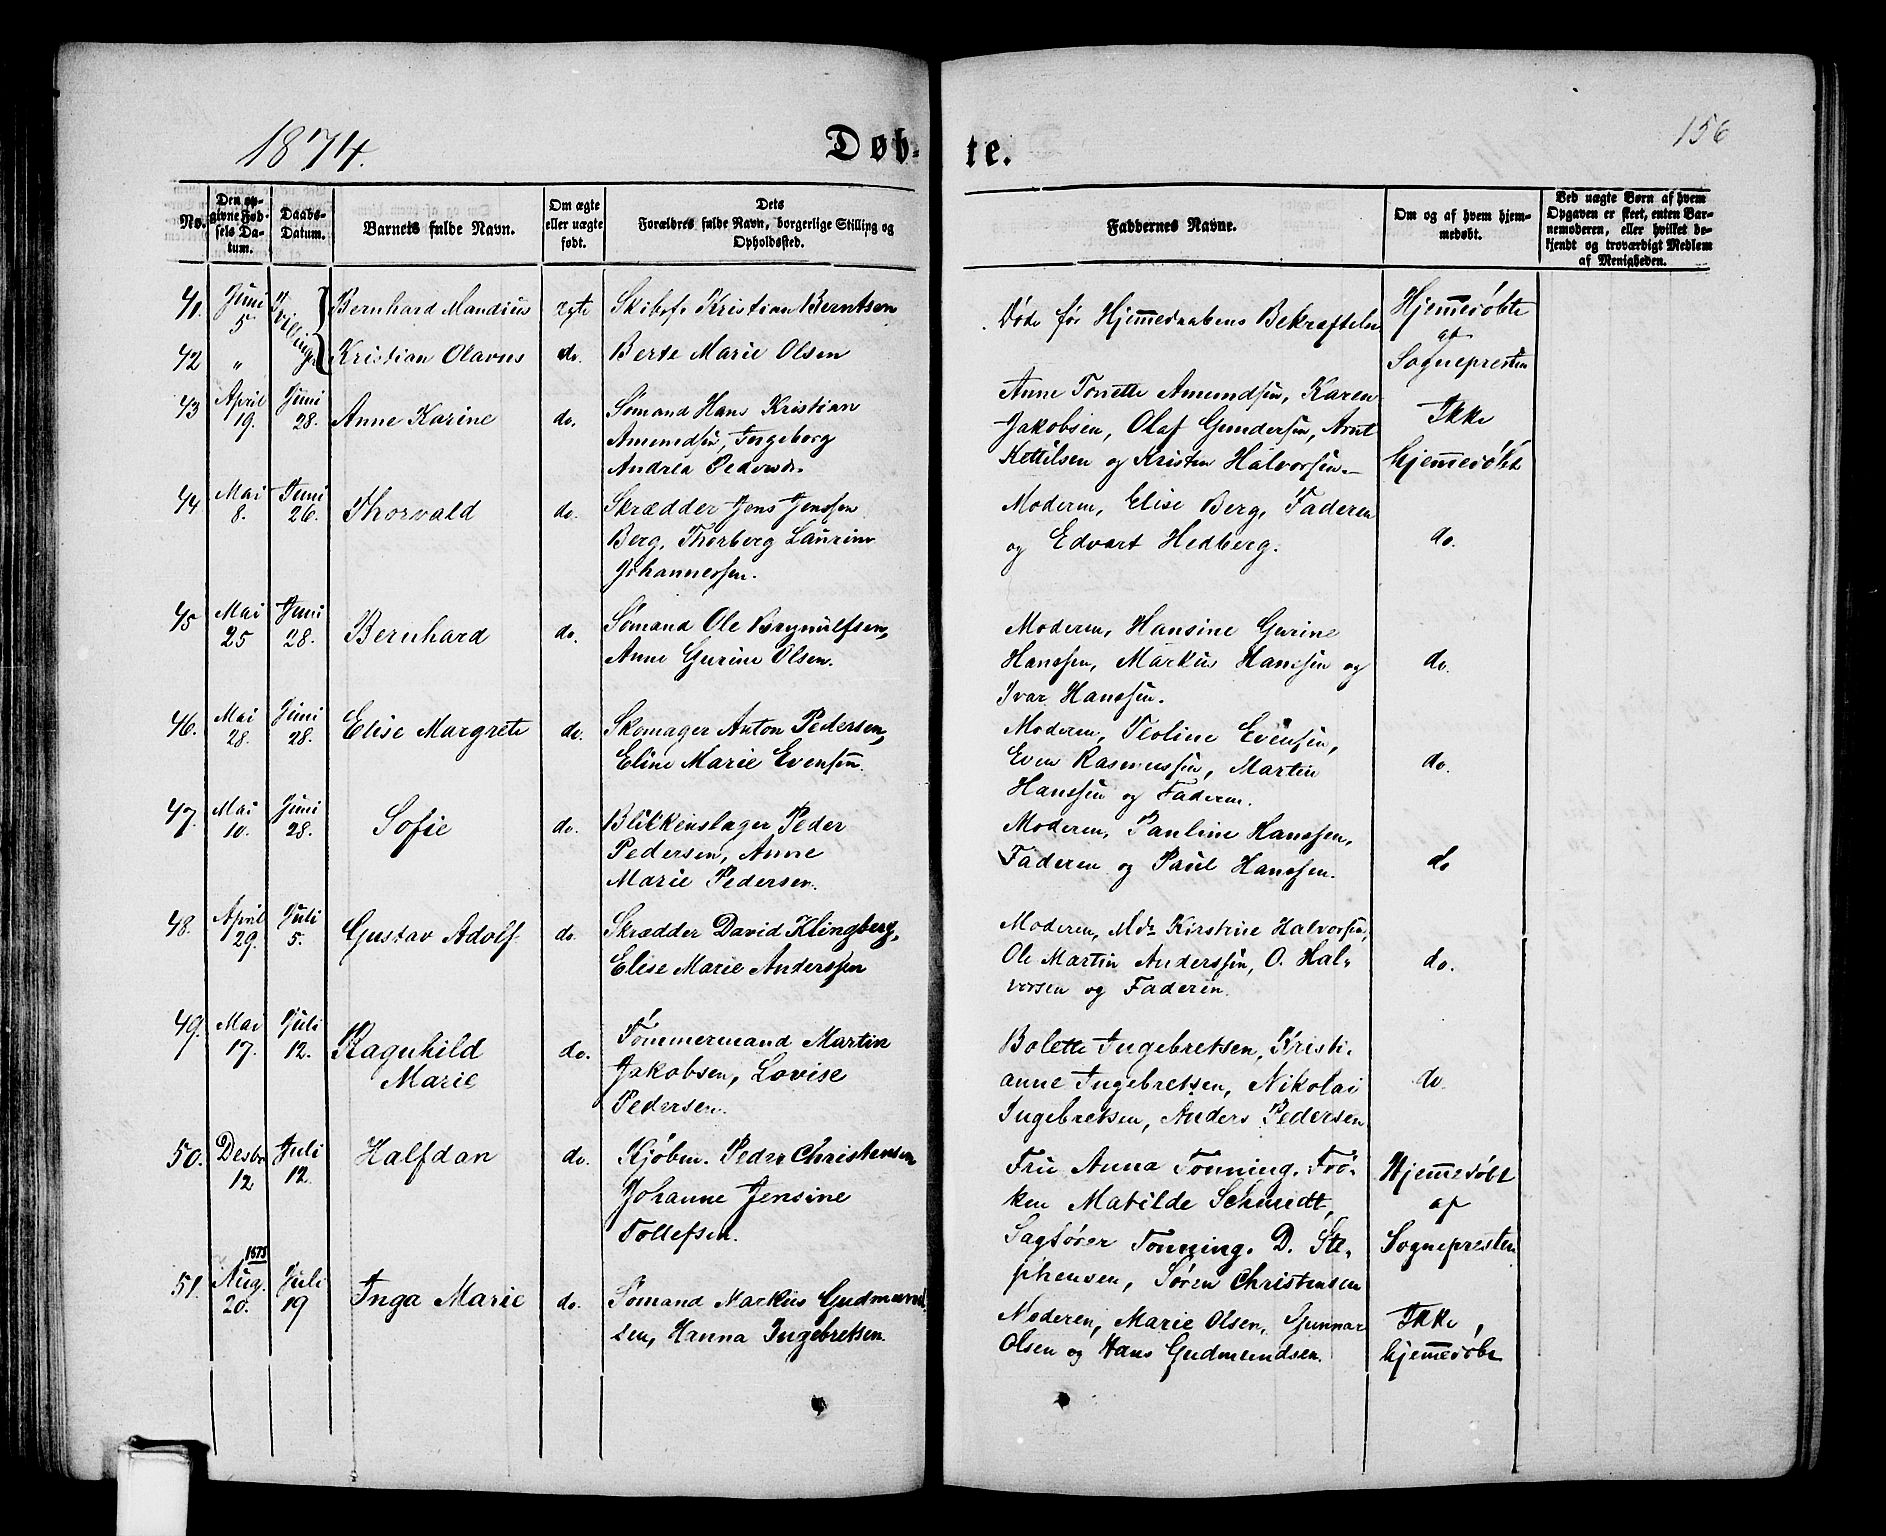 1874.
Døb-
te.
156
No.
Den op-
givne Fød-
sels Da-
tum.
Daabs-
Datum.
Barnets fulde Navn.
Om ægte
eller uægte
født.
Dets
Forældres fulde Navn, borgerlige Stilling og
Opholdssted.
Faddernes Navne.
Om og af hvem hjem-
medøbt.
Ved uægte Børn af hvem
Opgaven er skeet, enten Bar-
nemoderen, eller hvilket be-
kjendt og troværdigt Medlem
af Menigheden.
41. Juni 5 Bernhard Mandius ægte Skibsf. Kristian Berntsen
Døde før Hjemmedaabens Bekræftelse
Hjemedøbte
af
Sognepresten
42 " Tvillinger Kristian Olavus do. Berte Marie Olsen
43 April 19. Juni 28. Anne Karine do. Sømand Hans Kristian
Amundsen, Ingeborg
Andrea Pedersdr.
Anne Tonette Amundsen, Karen
Jakobsen, Olaf Gundersen, Arnt
Kettilsen og Kristen Halvorsen.
Ikke
hjemedøbt
44 Mai 8. Juni 26. Thorvald do. Skrædder Jens Jenssen
Berg, Thorberg Laurine
Johannessen.
Moderen, Elise Berg, Faderen
og Edvart Hedberg.
do.
45 Mai 25 Juni 28. Bernhard do. Sømand Ole Brynulfsen,
Anne Gurine Olsen.
Moderen, Hansine Gurine
Hanssen, Markus Hanssen og
Ivar Hanssen.
do.
46. Mai 28. Juni 28. Elise Margrete do. Skomager Anton Pedersen,
Eline Marie Evensen.
Moderen, Teoline Evensen,
Even Rasmussen, Martin
Hanssen og Faderen.
do.
47. Mai 10. Juni 28. Sofie do. Blikkenslager Peder
Pedersen, Anne
Marie Pedersen.
Moderen, Pauline Hanssen,
Faderen og Paul Hanssen.
do
48. April 29. Juli 5. Gustav Adolf do. Skrædder David Klingberg,
Elise Marie Anderssen
Moderen, Md. Kirstine Halvorsen,
Ole Martin Anderssen, O. Hal-
vorsen og Faderen.
do.
49. Mai 17. Juli 12. Ragnhild
Marie
do. Tømmermand Martin
Jakobsen, Lovise
Pedersen.
Bolette Ingebretsen, Kristi-
anne Ingebretsen, Nikolai
Ingebretsen, Anders Pedersen
do.
50. Desbr 12 Juli 12. Halfdan do. Kjøbm. Peder Christensen
Johanne Jensine
Tollefsen.
Fru Anna Tonning. Frø-
ken Mathilde Schmidt,
Sagfører Tonning. D. Ste-
phensen, Søren Christensen
Hjemmedøbt
af
Sognepresten
1873
51. Aug. 20. Juli 19 Inga Marie do. Sømand Markus Gudmund-
sen, Hanna Ingebretsen.
Moderen, Marie Olsen, Gunnar
Olsen og Hans Gudmundsen.
Ikke
hjemedøbt